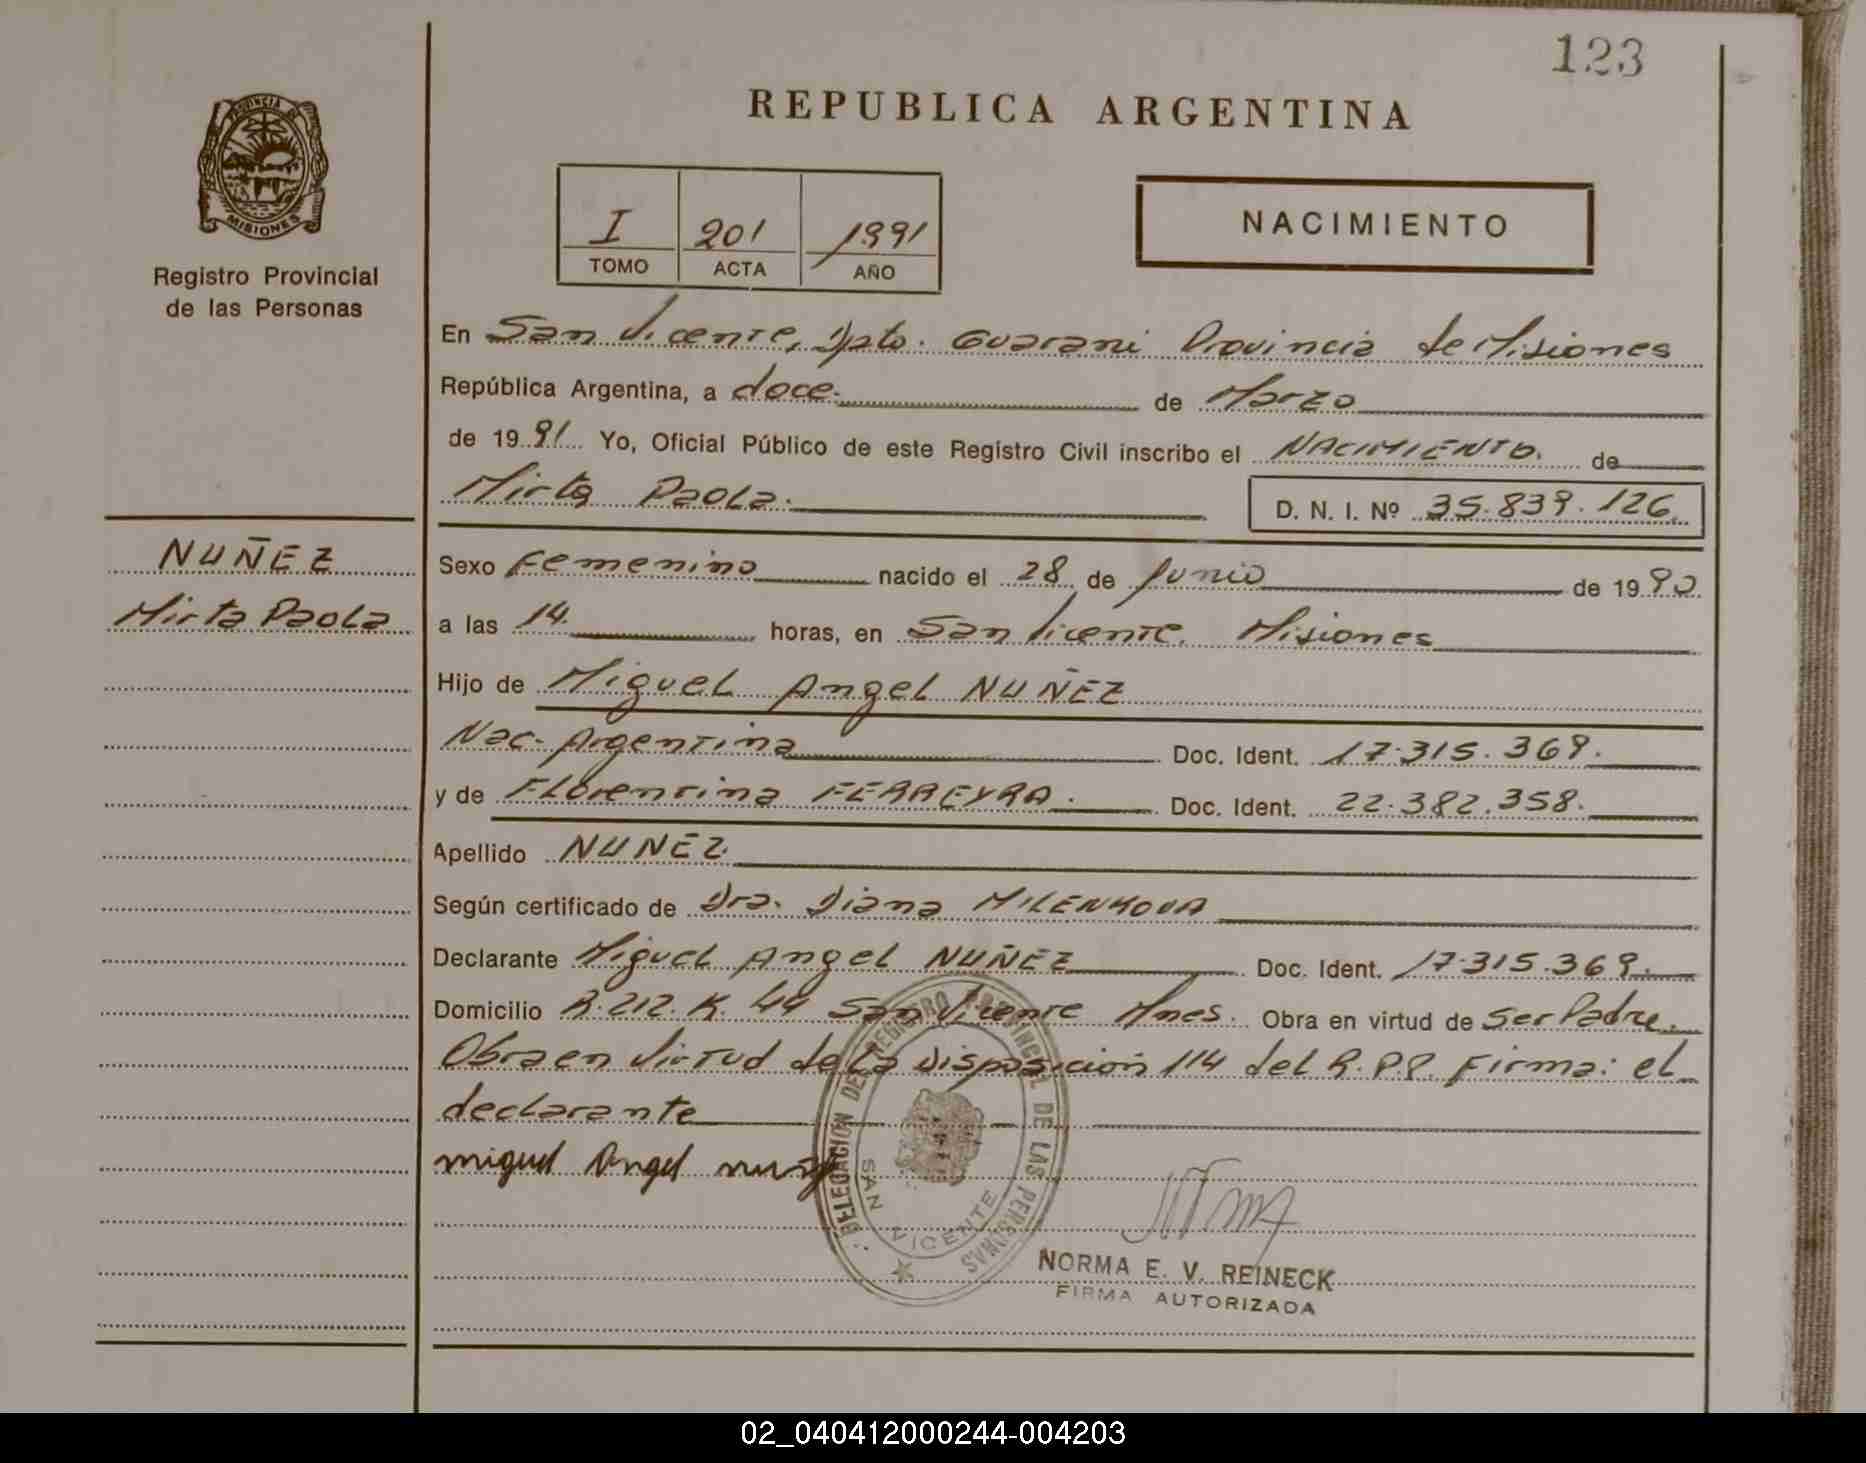 123
REPUBLICA ARGENTINA
PROVINCIA DE
MISIONES
Registro Provincial
de las Personas
I 201 1991
TOMO ACTA AÑO
NACIMIENTO
En San Vicente, Dpto. Guarani Provincia de Misiones
República Argentina, a doce. de Marzo
de 1991 Yo, Oficial Público de este Registro Civil inscribo el NACIMIENTO. de
Mirta Paola. D. N. I. Nº 35.839.126
NUÑEZ
Mirta Paola
Sexo Femenino nacido el 28 de Junio de 1990
a las 14. horas, en San Vicente. Misiones
Hijo de Miguel Angel NUÑEZ
Nac. Argentina Doc. Ident. 17.315.369.
y de Florentina FERREYRA. Doc. Ident. 22.382.358.
Apellido NUÑEZ
Según certificado de Dra. Diana MILENKOVA
Declarante Miguel Angel NUÑEZ Doc. Ident. 17.315.369.
Domicilio R.212.K.44 San Vicente Mnes. Obra en virtud de ser Padre.
Obra en virtud de la Disposición 114 del R.P.P. Firma: el
declarante
miguel Angel nuñez
DELEGACION DEL REGISTRO PROVINCIAL DE LAS PERSONAS
SAN VICENTE
NORMA E. V. REINECK
FIRMA AUTORIZADA
02_040412000244-004203